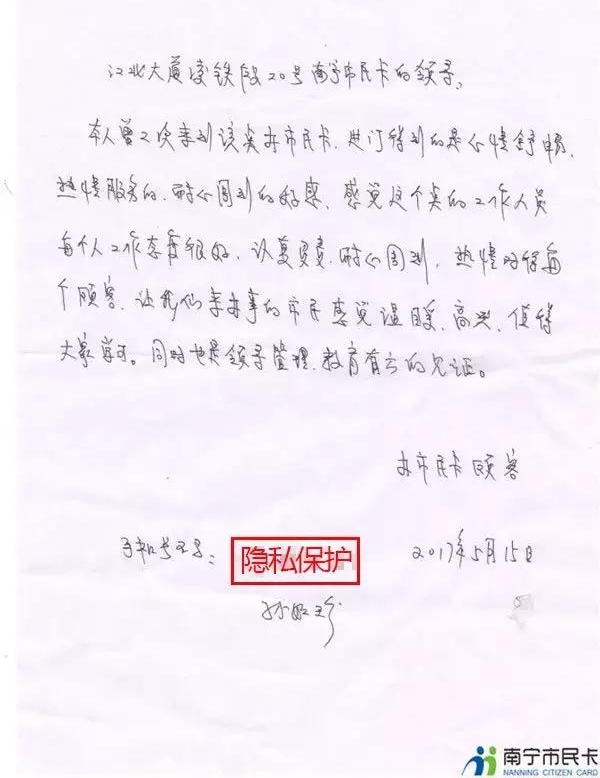 江北大道凌铁段20号南宁市民卡的领导,
本人曾2次来到该点办市民卡,进门得到的是心情舒畅,
热情服务的、耐心周到的好感,感觉这个点的工作人员
每个人工作态度很好,认真负责、耐心周到,热情对待每
个顾客,让我们来办事的市民感觉温暖、高兴,值得
大家学习。同时也是领导管理、教育有方的见证。
办市民卡顾客
手机号码:
隐私保护
2017年5月15日
南宁市民卡
NANNING CITIZEN CARD